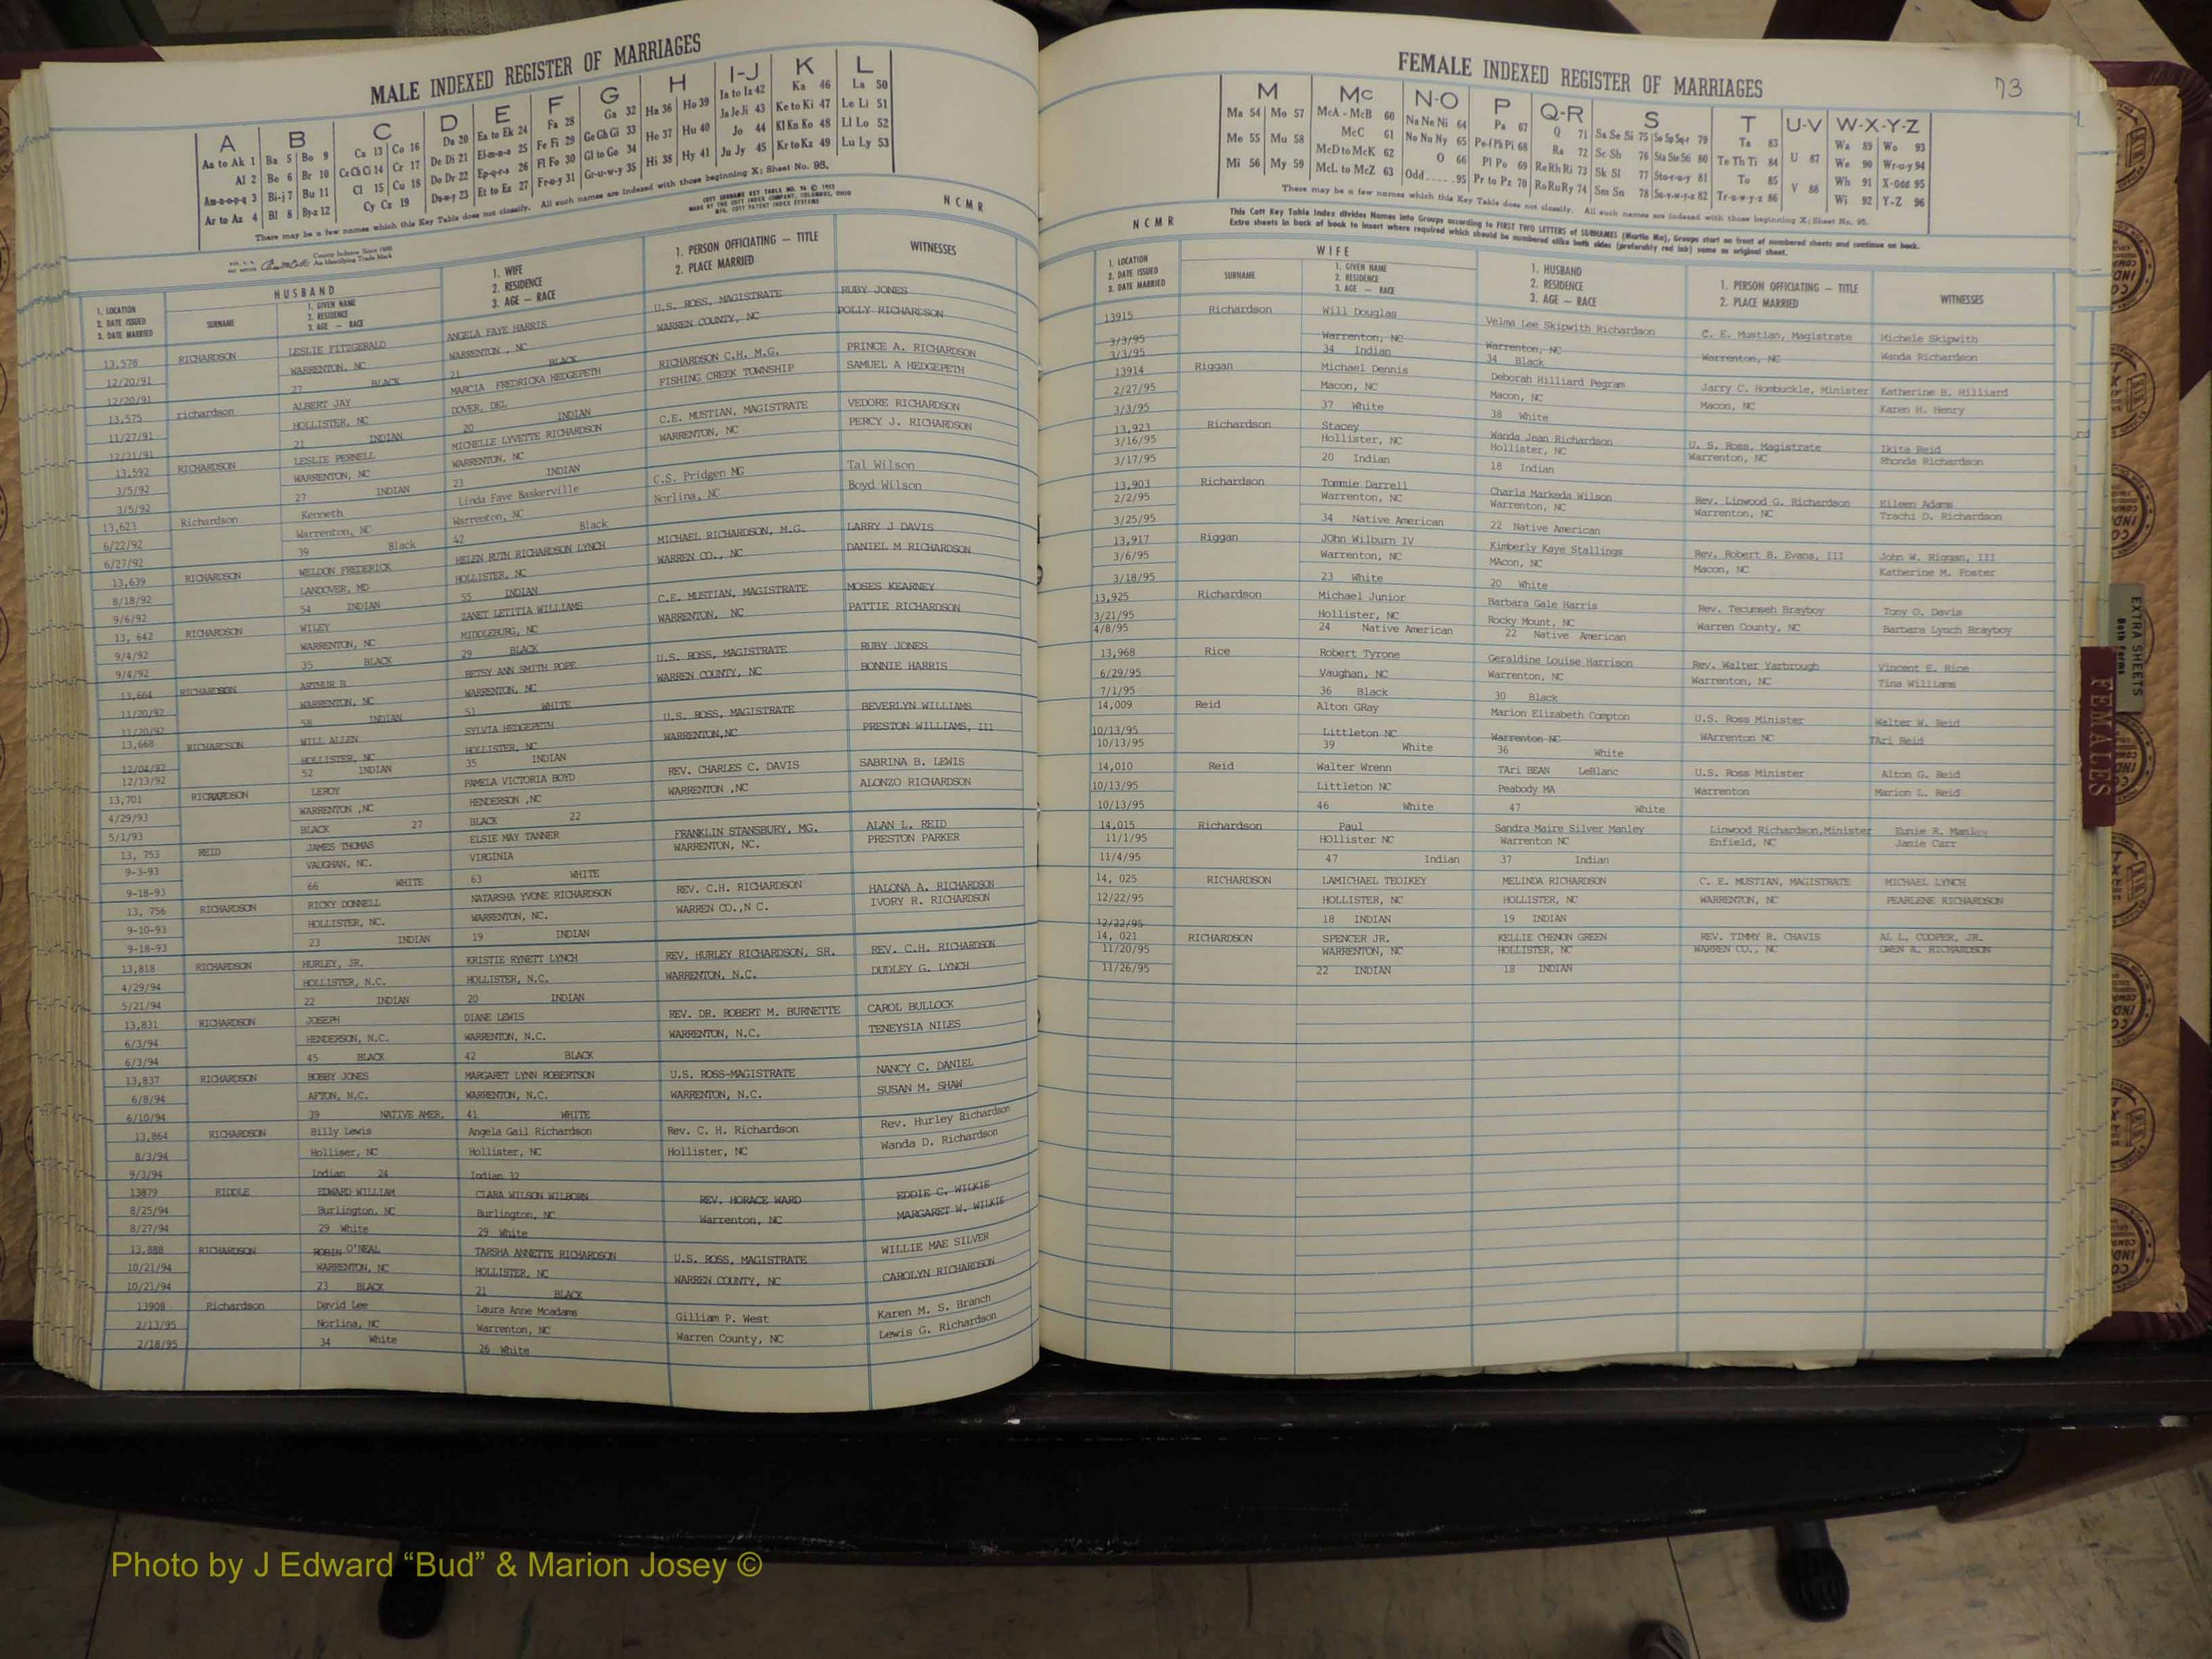 MALE INDEXED REGISTER OF MARRIAGES
A B C D E F G H I-J K L
Aa to Ak 1 Ba 5 Bo 9 Ca 13 Co 16 Da 20 Ea to Ek 24 Fa 28 Ga 32 Ha 36 Ho 39 Ia to Iz 42 Ka 46 La 50
Al 2 Be 6 Br 10 Ce Ch Ci 14 Cr 17 De Di 21 El-m-n-o 25 Fe Fi 29 Ge Gh Gi 33 He 37 Hu 40 Ja Je Ji 43 Ke to Ki 47 Le Li 51
Am-n-o-p-q 3 Bi-j 7 Bu 11 Cl 15 Cu 18 Do Dr 22 Ep-q-r-s 26 Fl Fo 30 Gl to Go 34 Hi 38 Hy 41 Jo 44 Kl Kn Ko 48 Ll Lo 52
Ar to Az 4 Bl 8 By-z 12 Cy Cz 19 Du-w-y 23 Et to Ez 27 Fr-u-y 31 Gr-u-w-y 35 Ju Jy 45 Kr to Kz 49 Lu Ly 53
There may be a few names which this Key Table does not classify. All such names are indexed with those beginning X; Sheet No. 95.
County Indexes Since 1888
An Identifying Trade Mark
COTT SURNAME KEY TABLE NO. 96 © 1952
MADE BY THE COTT INDEX COMPANY, COLUMBUS, OHIO
MFG. COTT PATENT INDEX SYSTEMS
NCMR
1. LOCATION
2. DATE ISSUED
3. DATE MARRIED
HUSBAND
SURNAME
1. GIVEN NAME
2. RESIDENCE
3. AGE — RACE
1. WIFE
2. RESIDENCE
3. AGE — RACE
1. PERSON OFFICIATING — TITLE
2. PLACE MARRIED
WITNESSES
13,578 RICHARDSON LESLIE FITZGERALD ANGELA FAYE HARRIS U.S. ROSS, MAGISTRATE RUBY JONES
12/20/91 WARRENTON, NC WARRENTON , NC WARREN COUNTY, NC POLLY RICHARDSON
12/20/91 27 BLACK 21 BLACK
13,575 richardson ALBERT JAY MARCIA FREDRICKA HEDGEPETH RICHARDSON C.H. M.G. PRINCE A. RICHARDSON
11/27/91 HOLLISTER, NC DOVER, DEL FISHING CREEK TOWNSHIP SAMUEL A HEDGEPETH
12/21/91 21 INDIAN 20 INDIAN
13,592 RICHARDSON LESLIE PERNELL MICHELLE LYVETTE RICHARDSON C.E. MUSTIAN, MAGISTRATE VEDORE RICHARDSON
3/5/92 WARRENTON, NC WARRENTON, NC WARRENTON, NC PERCY J. RICHARDSON
3/5/92 27 INDIAN 23 INDIAN
13,623 Richardson Kenneth Linda Faye Baskerville C.S. Pridgen MG Tal Wilson
6/22/92 Warrenton, NC Warrenton, NC Norlina, NC Boyd Wilson
6/27/92 39 Black 42 Black
13,639 RICHARDSON WELDON FREDERICK HELEN RUTH RICHARDSON LYNCH MICHAEL RICHARDSON, M.G. LARRY J DAVIS
8/18/92 LANDOVER, MD HOLLISTER, NC WARREN CO., NC DANIEL M RICHARDSON
9/6/92 54 INDIAN 55 INDIAN
13, 642 RICHARDSON WILEY ZANET LETITIA WILLIAMS C.E. MUSTIAN, MAGISTRATE MOSES KEARNEY
9/4/92 WARRENTON, NC MIDDLEBURG, NC WARRENTON, NC PATTIE RICHARDSON
9/4/92 35 BLACK 29 BLACK
13,664 RICHARDSON ARTHUR B BETSY ANN SMITH POPE U.S. ROSS, MAGISTRATE RUBY JONES
11/20/92 WARRENTON, NC WARRENTON, NC WARREN COUNTY, NC BONNIE HARRIS
11/20/92 58 INDIAN 51 WHITE
13,668 RICHARDSON WILL ALLEN SYLVIA HEDGEPETH U.S. ROSS, MAGISTRATE BEVERLYN WILLIAMS
12/04/92 HOLLISTER, NC HOLLISTER, NC WARRENTON,NC PRESTON WILLIAMS, III
12/13/92 52 INDIAN 35 INDIAN
13,701 RICHARDSON LEROY PAMELA VICTORIA BOYD REV. CHARLES C. DAVIS SABRINA B. LEWIS
4/29/93 WARRENTON ,NC HENDERSON ,NC WARRENTON ,NC ALONZO RICHARDSON
5/1/93 BLACK 27 BLACK 22
13, 753 REID JAMES THOMAS ELSIE MAY TANNER FRANKLIN STANSBURY, MG. ALAN L. REID
9-3-93 VAUGHAN, NC. VIRGINIA WARRENTON, NC. PRESTON PARKER
9-18-93 66 WHITE 63 WHITE
13, 756 RICHARDSON RICKY DONNELL NATARSHA YVONE RICHARDSON REV. C.H. RICHARDSON HALONA A. RICHARDSON
9-10-93 HOLLISTER, NC. WARRENTON, NC. WARREN CO.,N C. IVORY R. RICHARDSON
9-18-93 23 INDIAN 19 INDIAN
13,818 RICHARDSON HURLEY, JR. KRISTIE RYNETT LYNCH REV. HURLEY RICHARDSON, SR. REV. C.H. RICHARDSON
4/29/94 HOLLISTER, N.C. HOLLISTER, N.C. WARRENTON, N.C. DUDLEY G. LYNCH
5/21/94 22 INDIAN 20 INDIAN
13,831 RICHARDSON JOSEPH DIANE LEWIS REV. DR. ROBERT M. BURNETTE CAROL BULLOCK
6/3/94 HENDERSON, N.C. WARRENTON, N.C. WARRENTON, N.C. TENEYSIA NILES
6/3/94 45 BLACK 42 BLACK
13,837 RICHARDSON BOBBY JONES MARGARET LYNN ROBERTSON U.S. ROSS-MAGISTRATE NANCY C. DANIEL
6/8/94 AFTON, N.C. WARRENTON, N.C. WARRENTON, N.C. SUSAN M. SHAW
6/10/94 39 NATIVE AMER. 41 WHITE
13,864 RICHARDSON Billy Lewis Angela Gail Richardson Rev. C. H. Richardson Rev. Hurley Richardson
8/3/94 Holliser, NC Hollister, NC Hollister, NC Wanda D. Richardson
9/3/94 Indian 24 Indian 32
13879 RIDDLE EDWARD WILLIAM CLARA WILSON WILBORN REV. HORACE WARD EDDIE C. WILKIE
8/25/94 Burlington, NC Burlington, NC Warrenton, NC MARGARET W. WILKIE
8/27/94 29 White 29 White
13,888 RICHARDSON ROBIN O'NEAL TARSHA ANNETTE RICHARDSON U.S. ROSS, MAGISTRATE WILLIE MAE SILVER
10/21/94 WARRENTON, NC HOLLISTER, NC WARREN COUNTY, NC CAROLYN RICHARDSON
10/21/94 23 BLACK 21 BLACK
13908 Richardson David Lee Laura Anne Mcadams Gilliam P. West Karen M. S. Branch
2/13/95 Norlina, NC Warrenton, NC Warren County, NC Lewis G. Richardson
2/18/95 34 White 26 White
FEMALE INDEXED REGISTER OF MARRIAGES
73
M Mc N-O P Q-R S T U-V W-X-Y-Z
Ma 54 Mo 57 McA - McB 60 Na Ne Ni 64 Pa 67 Q 71 Sa Se Si 75 So Sp Sq-r 79 Ta 83 U 87 Wa 89 Wo 93
Me 55 Mu 58 McC 61 No Nu Ny 65 Pe-f Ph Pi 68 Ra 72 Sc Sh 76 Sta Ste Sti 80 Te Th Ti 84 V 88 We 90 Wr-u-y 94
Mi 56 My 59 McD to McK 62 O 66 Pl Po 69 Re Rh Ri 73 Sk Sl 77 Sto-r-u-y 81 To 85 Wh 91 X-Odd 95
McL to McZ 63 Odd 95 Pr to Pz 70 Ro Ru Ry 74 Sm Sn 78 Su-v-w-y-z 82 Tr-u-w-y-z 86 Wi 92 Y-Z 96
There may be a few names which this Key Table does not classify. All such names are indexed with those beginning X; Sheet No. 95.
NCMR
This Cott Key Table Index divides Names into Groups according to FIRST TWO LETTERS of SURNAMES (Martin Ma), Groups start on front of numbered sheets and continue on back.
Extra sheets in back of book to insert where required which should be numbered alike both sides (preferably red ink) same as original sheet.
1. LOCATION
2. DATE ISSUED
3. DATE MARRIED
WIFE
SURNAME
1. GIVEN NAME
2. RESIDENCE
3. AGE — RACE
1. HUSBAND
2. RESIDENCE
3. AGE — RACE
1. PERSON OFFICIATING — TITLE
2. PLACE MARRIED
WITNESSES
13915 Richardson Will Douglas Velma Lee Skipwith Richardson C. E. Mustian, Magistrate Michele Skipwith
3/3/95 Warrenton, NC Warrenton, NC Warrenton, NC Wanda Richardson
3/3/95 34 Indian 34 Black
13914 Riggan Michael Dennis Deborah Hilliard Pegram Jarry C. Hombuckle, Minister Katherine B. Hilliard
2/27/95 Macon, NC Macon, NC Macon, NC Karen H. Henry
3/3/95 37 White 38 White
13,923 Richardson Stacey Wanda Jean Richardson U. S. Ross, Magistrate Ikita Reid
3/16/95 Hollister, NC Hollister, NC Warrenton, NC Rhonda Richardson
3/17/95 20 Indian 18 Indian
13,903 Richardson Tommie Darrell Charla Markeda Wilson Rev. Linwood G. Richardson Eileen Adams
2/2/95 Warrenton, NC Warrenton, NC Warrenton, NC Trachi D. Richardson
3/25/95 34 Native American 22 Native American
13,917 Riggan JOhn Wilburn IV Kimberly Kaye Stallings Rev. Robert B. Evans, III John W. Riggan, III
3/6/95 Warrenton, NC MAcon, NC Macon, NC Katherine M. Foster
3/18/95 23 White 20 White
13,925 Richardson Michael Junior Barbara Gale Harris Rev. Tecumseh Brayboy Tony O. Davis
3/21/95 Hollister, NC Rocky Mount, NC Warren County, NC Barbara Lynch Brayboy
4/8/95 24 Native American 22 Native American
13,968 Rice Robert Tyrone Geraldine Louise Harrison Rev. Walter Yarbrough Vincent E. Rice
6/29/95 Vaughan, NC Warrenton, NC Warrenton, NC Tina Williams
7/1/95 36 Black 30 Black
14,009 Reid Alton GRay Marion Elizabeth Compton U.S. Ross Minister Walter W. Reid
10/13/95 Littleton NC Warrenton NC WArrenton NC TAri Reid
10/13/95 39 White 36 White
14,010 Reid Walter Wrenn TAri BEAN LeBlanc U.S. Ross Minister Alton G. Reid
10/13/95 Littleton NC Peabody MA Warrenton Marion L. Reid
10/13/95 46 White 47 White
14,015 Richardson Paul Sandra Maire Silver Manley Linwood Richardson,Minister Eunie R. Manley
11/1/95 Hollister NC Warrenton NC Enfield, NC Janie Carr
11/4/95 47 Indian 37 Indian
14, 025 RICHARDSON LAMICHAEL TEOIKEY MELINDA RICHARDSON C. E. MUSTIAN, MAGISTRATE MICHAEL LYNCH
12/22/95 HOLLISTER, NC HOLLISTER, NC WARRENTON, NC PEARLENE RICHARDSON
12/22/95 18 INDIAN 19 INDIAN
14, 021 RICHARDSON SPENCER JR. KELLIE CHENON GREEN REV. TIMMY R. CHAVIS AL L. COOPER, JR.
11/20/95 WARRENTON, NC HOLLISTER, NC WARREN CO., NC GREN A. RICHARDSON
11/26/95 22 INDIAN 18 INDIAN
EXTRA SHEETS
Both Forms
FEMALES
Photo by J Edward “Bud” & Marion Josey ©